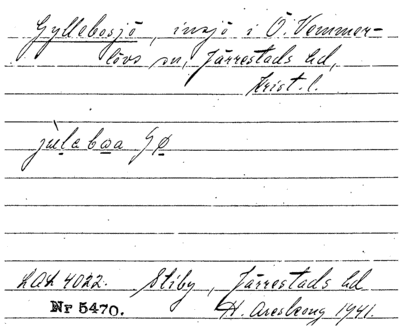 Gyllebosjö, insjö i Ö. Vemmer-
lövs sn, Järrestads hd,
Krist. l.
LAL 4022. Stiby, Järrestads hd
Nr 5470. H. Areskoug 1941.